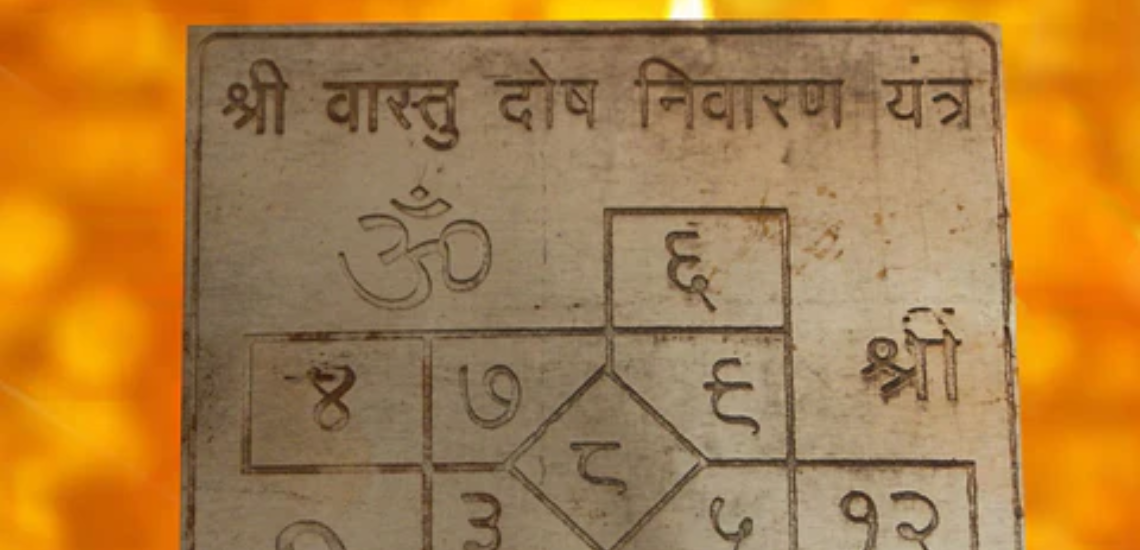 श्री वास्तु दोष निवारण यंत्र
ॐ
६
श्रीं
४ ७ ९
८
३ ५ १२